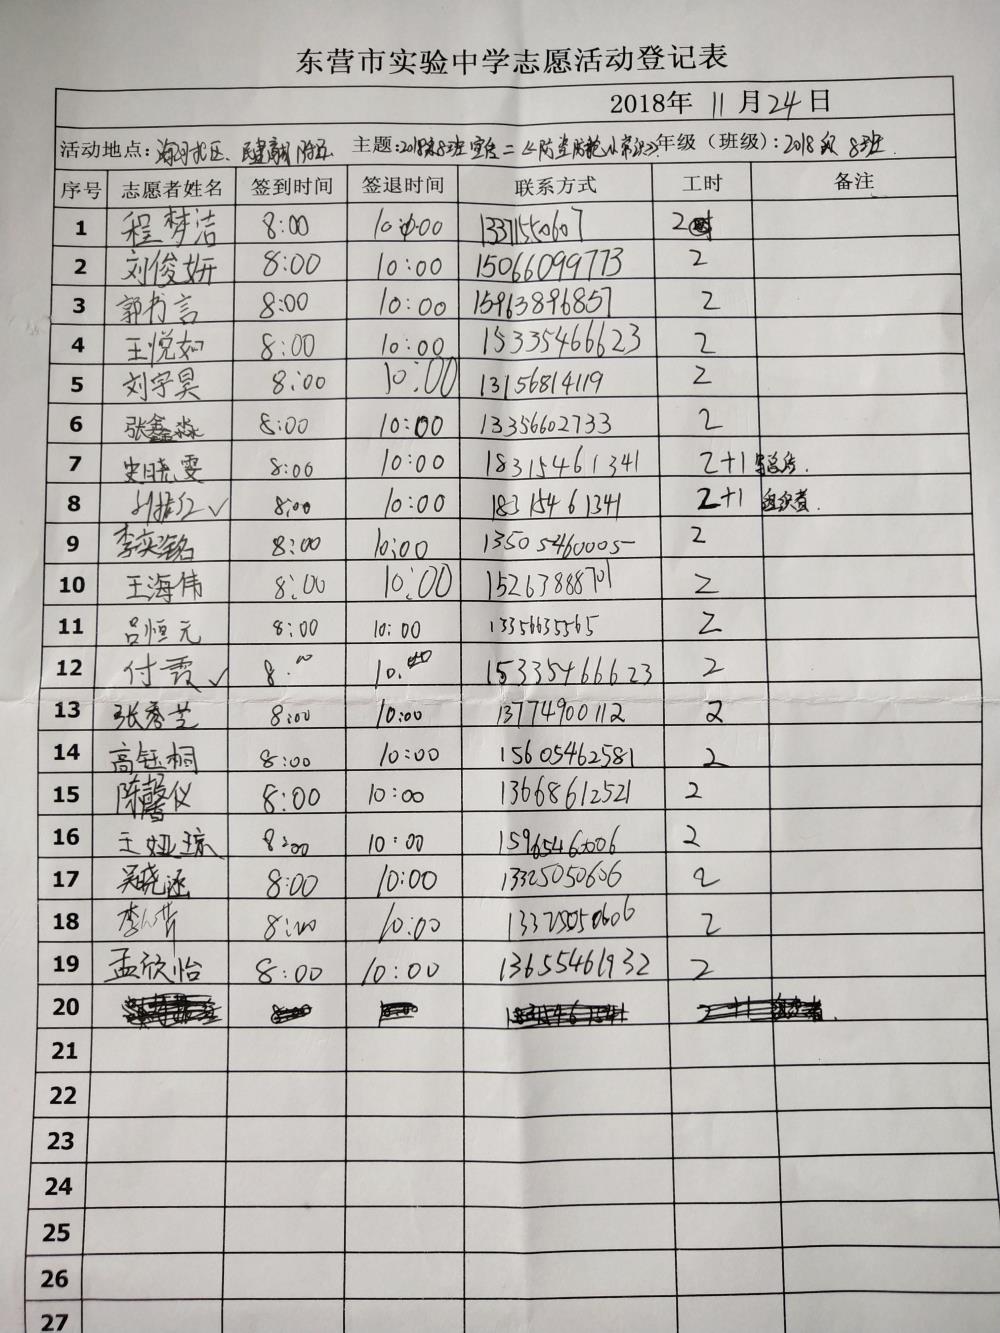 东营市实验中学志愿活动登记表
2018年 11 月 24 日
活动地点: 主题: 年级（班级）: 2018级 8班
序号 志愿者姓名 签到时间 签退时间 联系方式 工时 备注
1 程梦洁 8:00 10:00 2
2 刘俊妍 8:00 10:00 15066099773 2
3 郭书言 8:00 10:00 15963896857 2
4 王悦如 8:00 10:00 15335466623 2
5 刘宇昊 8:00 10:00 13156814119 2
6 张鑫淼 8:00 10:00 13356602733 2
7 史晓雯 8:00 10:00 18315461341 2+1
8 8:00 10:00 18315461341 2+1
9 李奕铭 8:00 10:00 13505460005 2
10 王海伟 8:00 10:00 15263888701 2
11 吕恒元 8:00 10:00 13356635565 2
12 付霞 8:00 10:00 15335466623 2
13 张秀芝 8:00 10:00 13774900112 2
14 高钰桐 8:00 10:00 15605462581 2
15 陈馨仪 8:00 10:00 13668612521 2
16 王娅琼 8:00 10:00 2
17 吴晓涵 8:00 10:00 13325050606 2
18 8:00 10:00 2
19 孟欣怡 8:00 10:00 13655461932 2
20
21
22
23
24
25
26
27